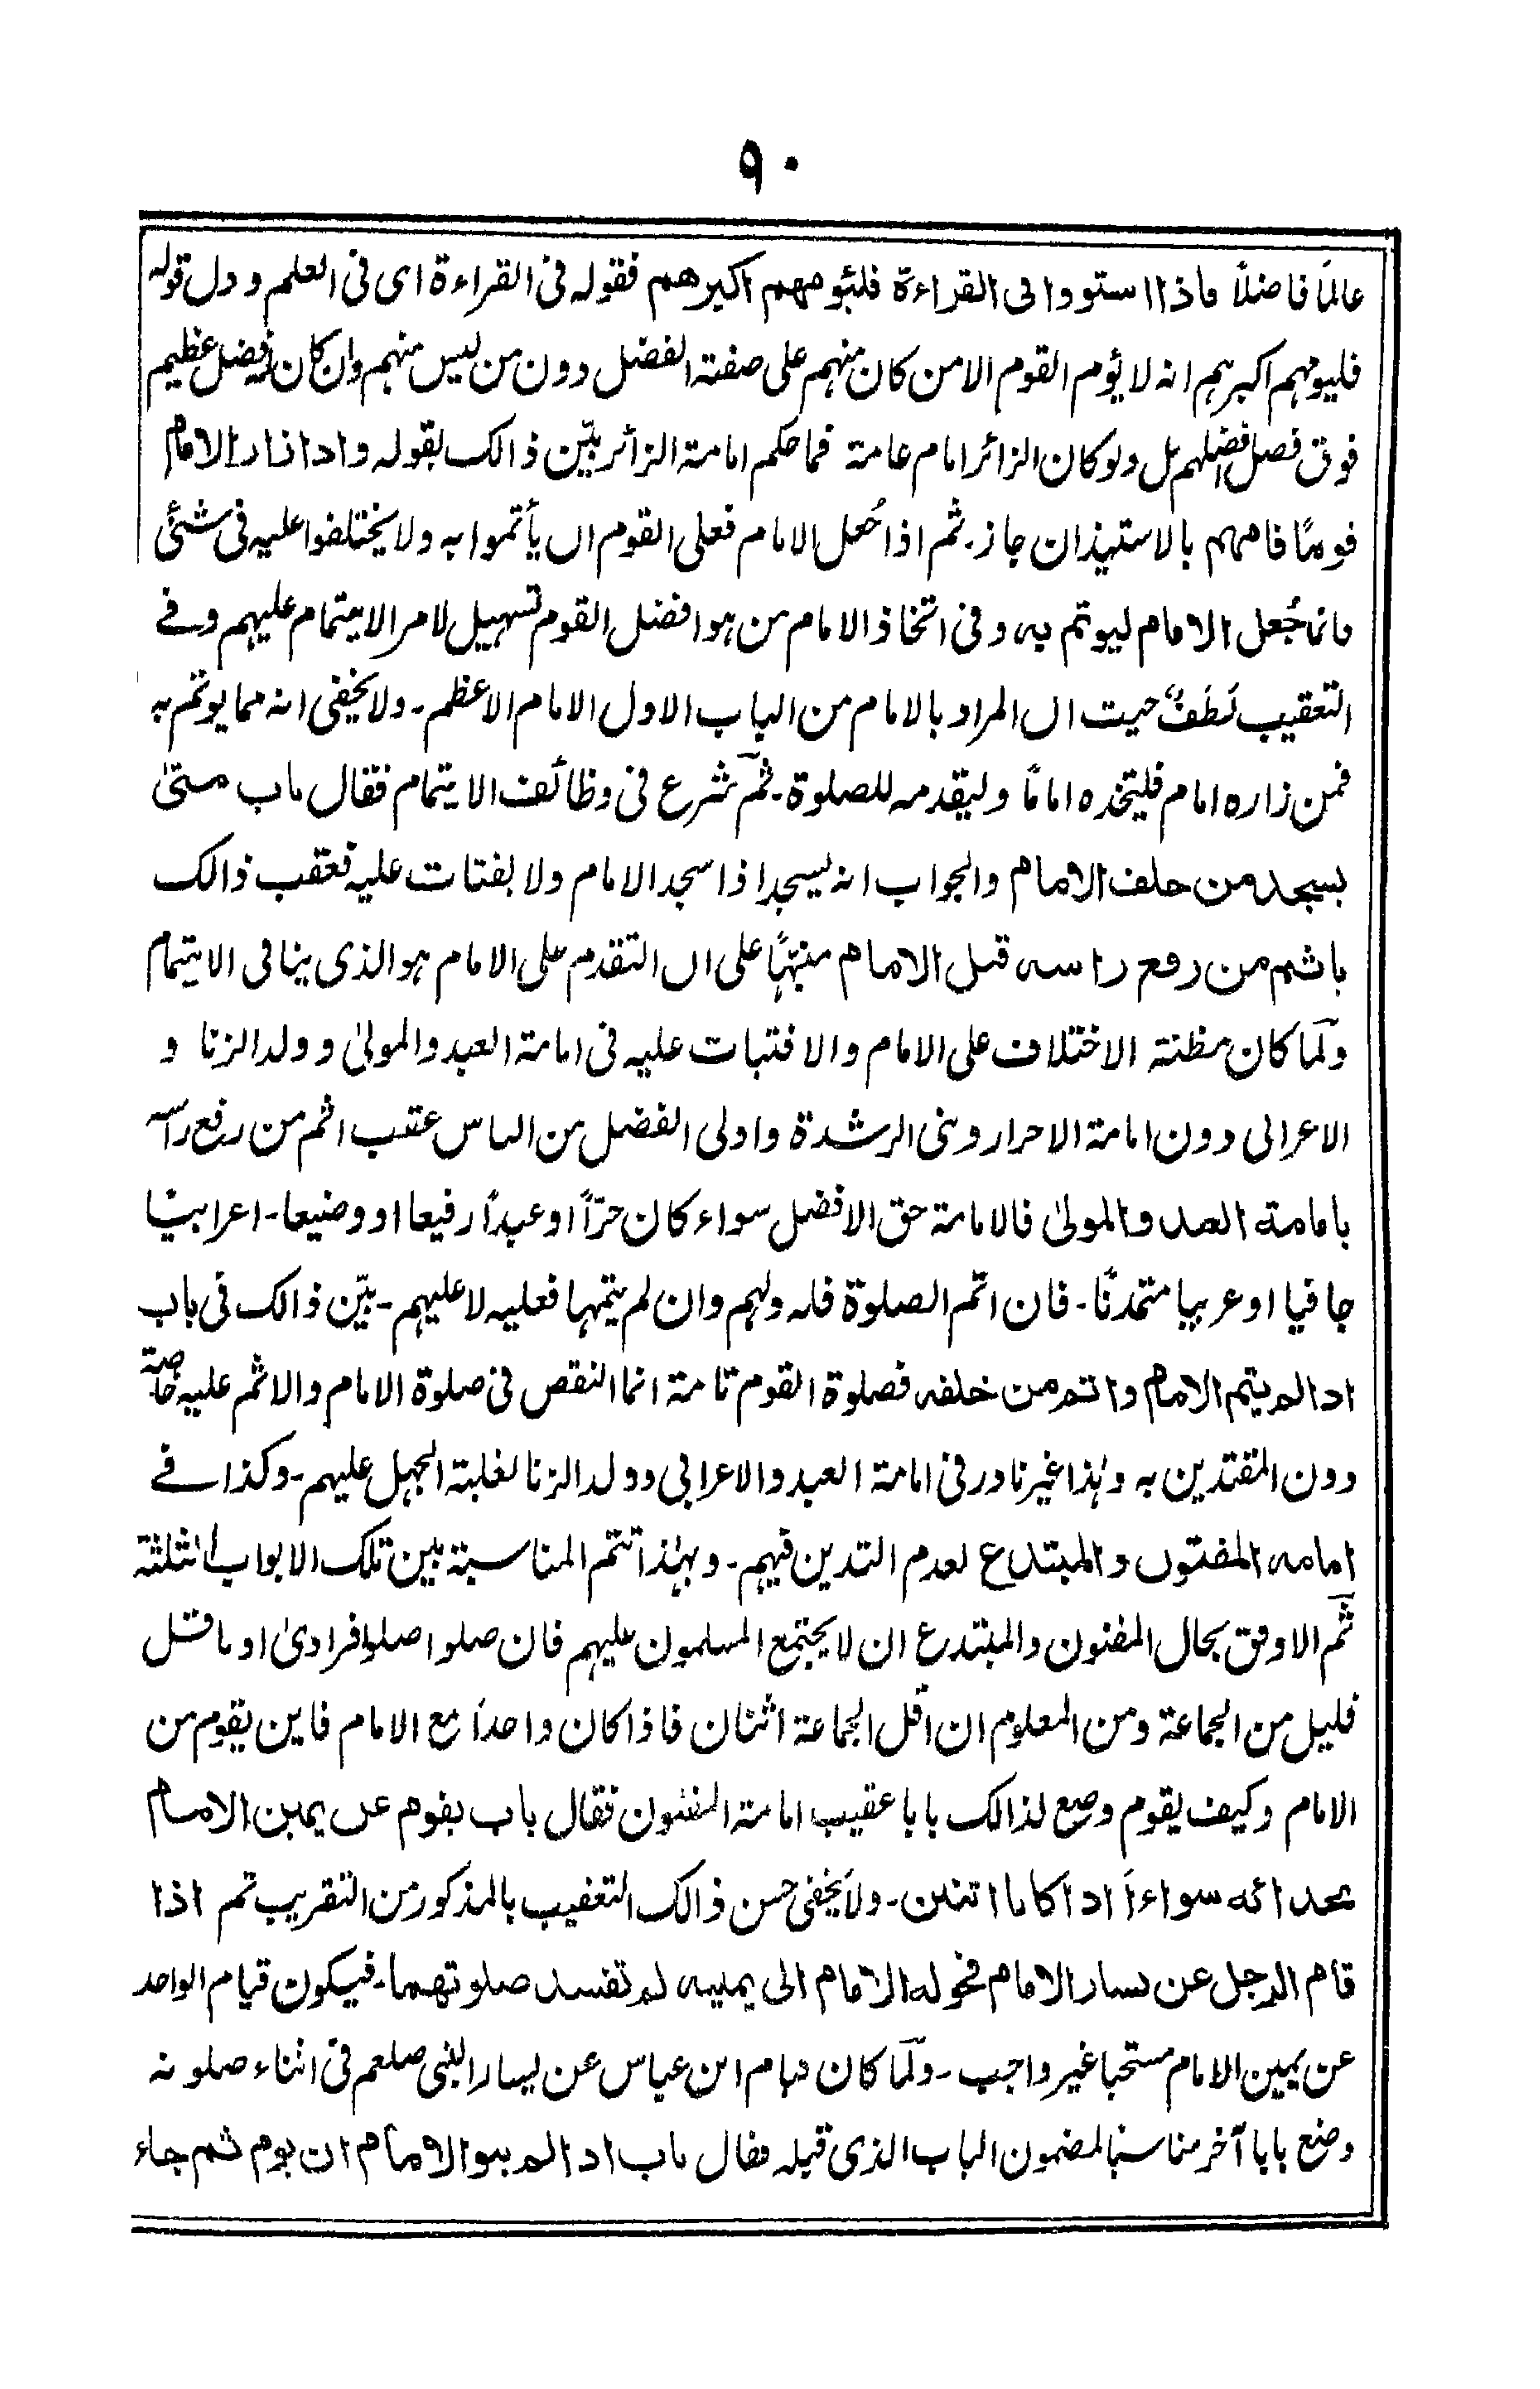 ٩٠
عالمًا فاضلًا فاذا استووا فى القراءة فليؤمهم اكبرهم فقوله فى القراءة اى فى العلم و دل قوله
فليومهم اكبرہم انه لا يؤم القوم الا من كان منهم على صفة الفضل دون من ليس منهم وان كان له فضل عظيم
فوق فضل افضلهم بل ولو كان الزائر امام عامة فما حكم امامة الزائر بيّن ذالك بقوله واذا زار الامام
قومًا فامهم بالاستيذان جاز۔ ثم اذا جُعل الامام فعلى القوم ان يأتموا به ولا يختلفوا عليه فى شئى
فانما جُعل الامام ليوتم به وفى اتخاذ الامام من هو افضل القوم تسهيل لامر الايتمام عليهم وفے
التعقيب لَطَفٌ حيث ان المراد بالامام من الباب الاول الامام الاعظم۔ ولا يخفى انه مما يوتم به
فمن زاره امام فليتخذه امامًا وليقدمه للصلوة۔ ثمّ شرع فى وظائف الايتمام فقال باب متىٰ
يسجد من خلف الامام والجواب انه يسجد اذا سجد الامام ولا يفتات عليه فعقب ذالك
باثم من رفع راسه قبل الامام منبّهًا على ان التقدم على الامام هو الذى ينافى الايتمام
ولّما كان مظنة الاختلاف على الامام والافتيات عليه فى امامة العبد والمولىٰ وولد الزنا و
الاعرابى دون امامة الاحرار وبنى الرشدة واولى الفضل من الناس عقب اثم من رفع راسه
بامامة العبد والمولىٰ فالامامة حق الافضل سواء كان حرًّا او عبدًا رفيعا او وضيعا۔ اعرابيًا
جافيا او عربيا متمدنًا۔ فان اتم الصلوة فله ولهم وان لم يتمها فعليه لا عليهم۔ بيّن ذالك فى باب
اذا لم يتم الامام واتم من خلفه فصلوة القوم تامة انما النقص فى صلوة الامام والاثم عليه خاصة
دون المقتدين به وہٰذا غير نادر فى امامة العبد والاعرابى وولد الزنا لغلبة الجهل عليهم۔ وكذا فے
امامة المفتون والمبتدع لعدم التدين فيهم۔ وبهٰذا تتم المناسبة بين تلك الابواب الثلثة
ثمّ الاوفق بحال المفتون والمبتدع ان لا يجتمع المسلمون عليهم فان صلوا صلوا فرادىٰ او باقل
قليل من الجماعة ومن المعلوم ان اقل الجماعة اثنان فاذا كان واحدًا مع الامام فاين يقوم من
الامام وكيف يقوم وضع لذالك بابا عقيب امامة المفتون فقال باب يقوم عن يمين الامام
بحذائه سواءً اذا كانا اثنين۔ ولا يخفى حسن ذالك التعقيب بالمذكور من التقريب ثم اذا
قام الرجل عن يسار الامام فحوله الامام الى يمينه لم تفسد صلوتهما۔ فيكون قيام الواحد
عن يمين الامام مستحبا غير واجب۔ ولّما كان قيام ابن عباس عن يسار النبى صلعم فى اثناء صلوته
وضع بابا آخر مناسبا لمضمون الباب الذى قبله فقال باب اذا لم ينو الامام ان يؤم ثم جاء